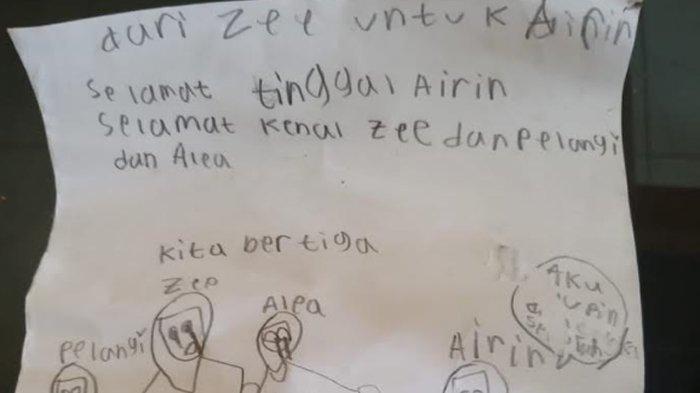 dari Zee untuk Airin
Selamat tinggal Airin
Selamat Kenal Zee dan Pelangi
dan Alea
Kita bertiga
Zee
Alea
Pelangi
Airin
AKU